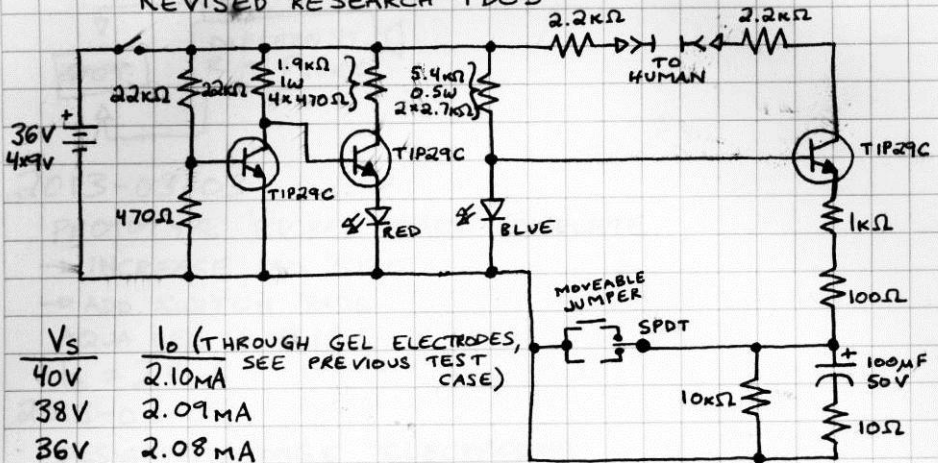 REVISED RESEARCH TDCS
2.2KΩ
2.2KΩ
TO
HUMAN
22KΩ
22KΩ
1.9KΩ
1W
4x470Ω
5.4KΩ
0.5W
2x2.7KΩ
+
36V
4x9V
TIP29C
TIP29C
TIP29C
470Ω
RED
BLUE
1KΩ
100Ω
MOVEABLE
JUMPER
SPDT
+
100µF
50V
10KΩ
10Ω
Vs Io (THROUGH GEL ELECTRODES,
SEE PREVIOUS TEST
CASE)
40V 2.10MA
38V 2.09MA
36V 2.08MA